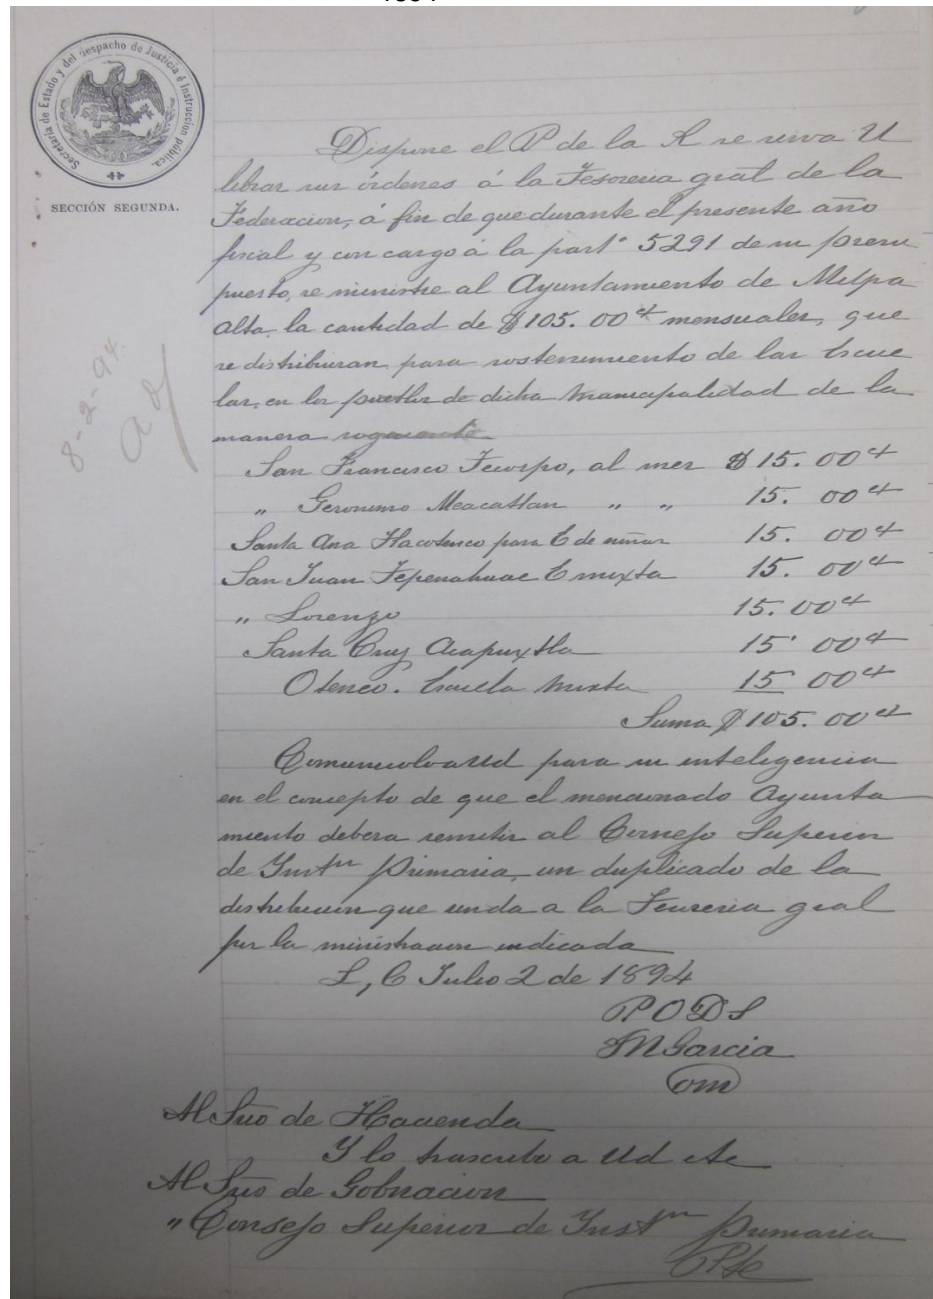 1894
Secretaría de Estado y del Despacho de Justicia é Instrucción pública.
SECCIÓN SEGUNDA.
8-2-94.
Dispone el P de la R se sirva U
librar sus órdenes á la Tesoreria gral de la
Federacion, á fin de que durante el presente año
fiscal y con cargo á la part.ª 5291 de su presu
puesto, se ministre al Ayuntamiento de Milpa
Alta la cantidad de $105.00 cs mensuales, que
se distribuiran para sostenimiento de las Escue
las, en los pueblos de dicha Municipalidad de la
manera siguiente
San Francisco Tecospo, al mes $ 15.00 cs
" Geronimo Meacatlan " " 15.00 cs
Santa Ana Tlacotenco para E de niñas 15.00 cs
San Juan Tepenahuac E mixta 15.00 cs
" Lorenzo 15.00 cs
Santa Cruz Acapuxtla 15.00 cs
Otenco. Escuela mixta 15 00 cs
Suma $ 105.00 cs
Comunicolo a Ud para su inteligencia
en el concepto de que el mencionado Ayunta
miento debera remitir al Consejo Superior
de Instn Primaria, un duplicado de la
distribucion que rinda a la Tesoreria gral
por la ministracion indicada
L, C Julio 2 de 1894
P O D S
M Garcia
om
Al Srio de Hacienda
Y lo trascribo a Ud etc
Al Srio de Gobnacion
" Consejo Superior de Instn Primaria